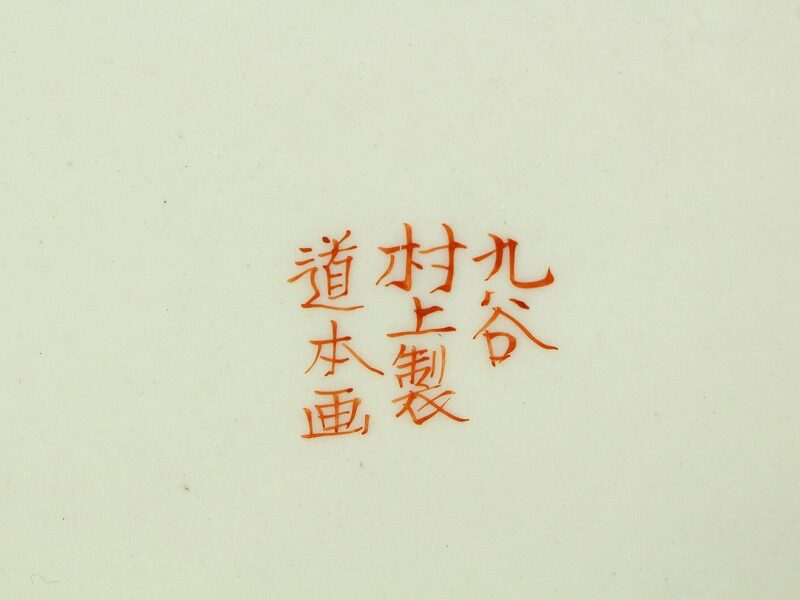 九谷
村上製
道本画